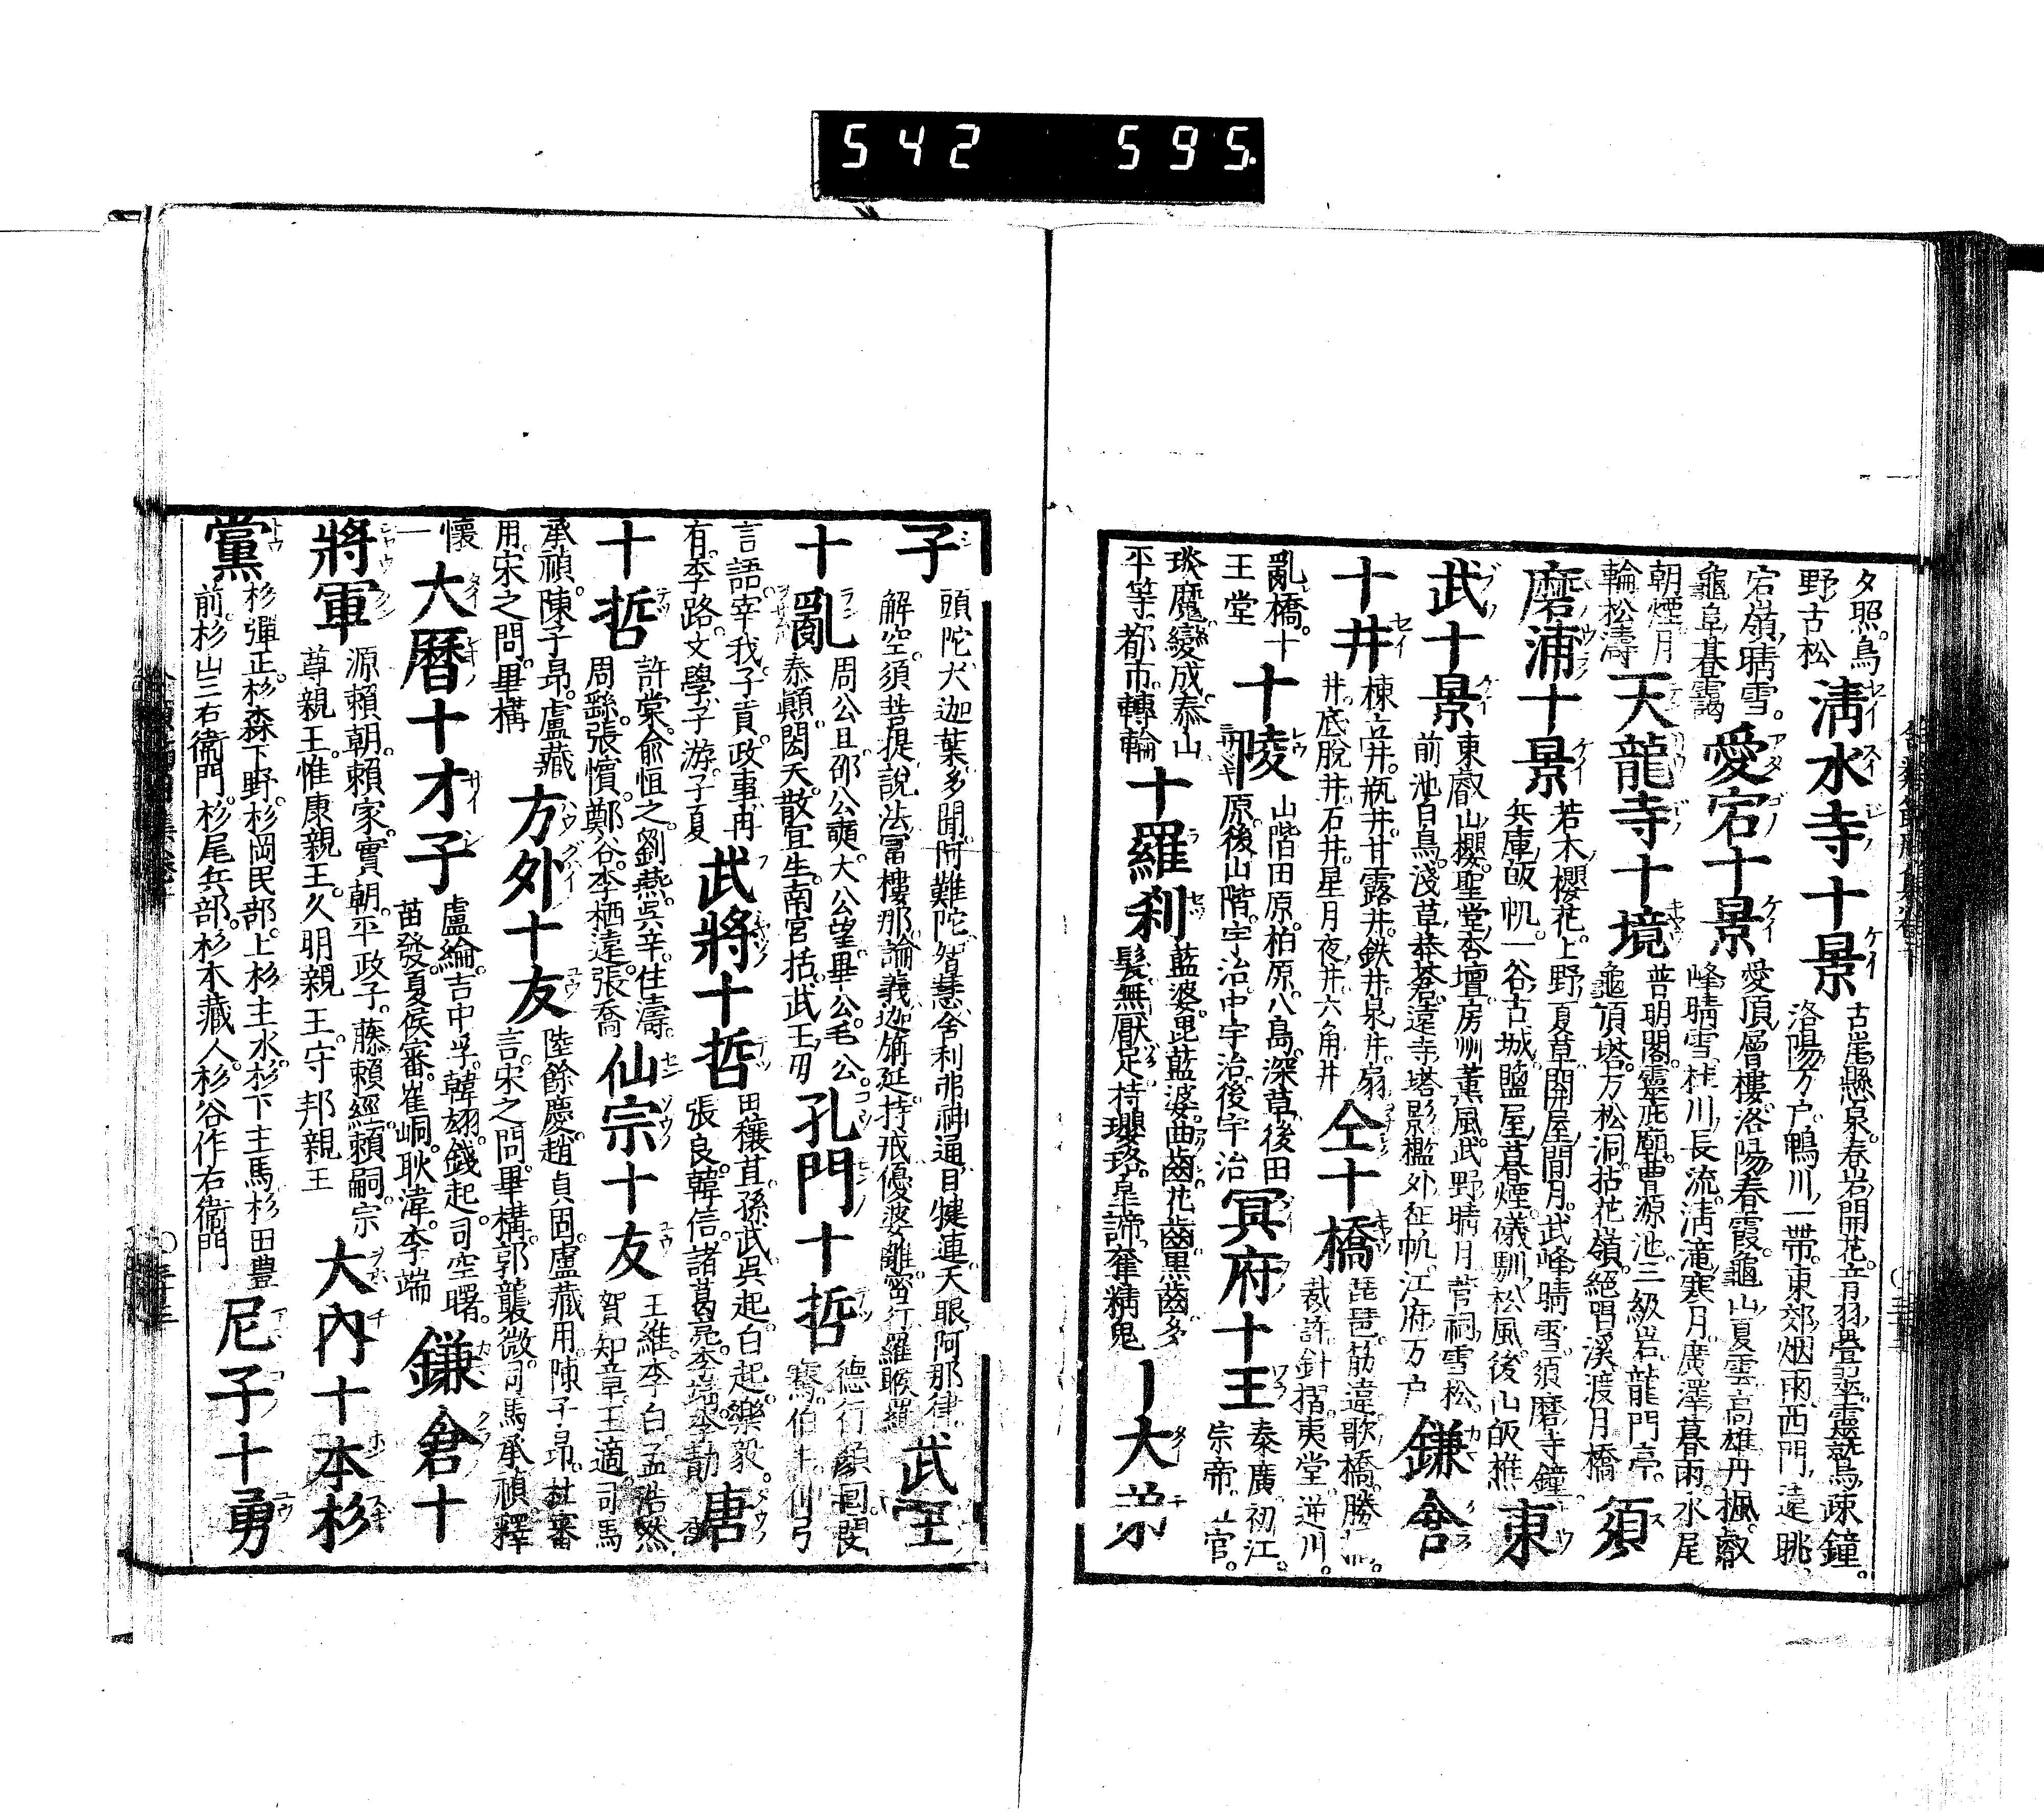 542 595
夕照。鳥
野古松
清水寺十景
古尾懸泉。春岩開花。音羽疊翠。靈鷲疎鐘。
洛陽万戸。鴨川一帶。東郊烟雨。西門遠眺。
宕嶺晴雪。
龜阜暮靄
愛宕十景
愛頂層樓。洛陽春霞。龜山夏雲。高雄丹楓。叡
峰晴雪。桂川長流。清滝寒月。廣澤暮雨。水尾
朝煙。月
輪松濤
天龍寺十境
普明閣。靈庇廟。曹源池。三級岩。龍門亭。
龜頂塔。万松洞。拈花嶺。絕唱溪。渡月橋
須
磨浦十景
若木櫻花。上野夏草。關屋間月。武峰晴雪。須磨寺鐘。
兵庫皈帆。一谷古城。鹽屋暮煙。磯馴松風。後山皈樵
東
武十景
東叡山櫻。聖堂杏壇。房州薫風。武野晴月。菅祠雪松。
前池白鳥。淺草蒼。遠寺塔影。檻外征帆。江府万户
鎌倉
十井
棟立井。瓶井。甘露井。鉄井。泉井。扇
井。底脫井。石井。星月夜井。六角井
仝十橋
琵琶。筋違。歌橋。勝
裁許。針摺。夷堂。逆川。
亂橋。十
王堂
十陵
山階。田原。柏原。八島。深草。後田
原。後山階。宇治。中宇治。後宇治
冥府十王
秦廣。初江。
宗帝。官。
琰魔。變成。泰山
平等。都市。轉輪
十羅刹
藍婆。毘藍婆。曲齒。花齒。黒齒。多
髮。無厭足。持瓔珞。皐諦。奪精鬼
大弟
子
頭陀大迦葉。多聞阿難陀。智慧舍利弗。神通目犍連。天眼阿那律。
解空須菩提。說法冨樓那。論義迦旃延。持戒優婆離。密行羅睺羅
武王
十亂
周公旦。邵公奭。大公望。畢公。毛公。
泰顚。閎夭。散宜生。南宮括。武王母
孔門十哲
德行顔回。閔
騫。伯牛。仲弓
言語宰我。子貢。政事冉
有。季路。文學子游。子夏
武將十哲
田穰苴。孫武。呉起。白起。樂毅。
張良。韓信。諸葛亮。李靖。李勣
唐
十哲
許棠。兪恒之。劉燕。呉辛。任濤。
周繇。張憤。鄭谷。李栖遠。張喬
仙宗十友
王維。李白。孟浩然。
賀知章。王適。司馬
承禎。陳子昻。盧藏
用。宋之問。畢構
方外十友
陸餘慶。趙貞固。盧藏用。陳子昻。杜審
言。宋之問。畢構。郭襲微。司馬承禎。釋
懷
一
大曆十才子
盧綸。吉中孚。韓翃。錢起。司空曙。
苗發。夏侯審。崔峒。耿湋。李端
鎌倉十
將軍
源賴朝。賴家。實朝。平政子。藤賴經。賴嗣。宗
尊親王。惟康親王。久明親王。守邦親王
大内十本杉
黨
杉彈正。杉森下野。杉岡民部。上杉主水。杉下主馬。杉田豊
前。杉山三右衞門。杉尾兵部。杉木藏人。杉谷作右衞門
尼子十勇